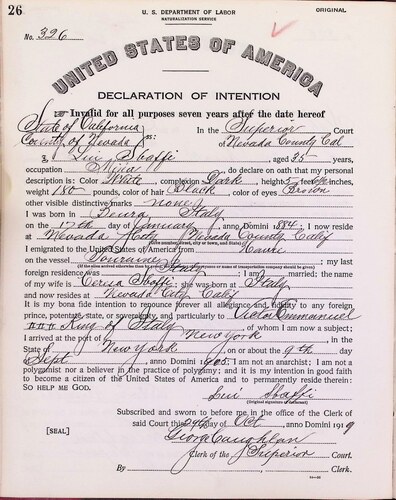 26
U. S. DEPARTMENT OF LABOR
NATURALIZATION SERVICE
ORIGINAL
No. 326
UNITED STATES OF AMERICA
DECLARATION OF INTENTION
Invalid for all purposes seven years after the date hereof
State of California
County of Nevada ss:
In the Superior Court
of Nevada County Cal
I, Sbaffi, aged 35 years,
occupation Miner, do declare on oath that my personal
description is: Color White, complexion Dark, height 5 feet inches,
weight 180 pounds, color of hair Black, color of eyes Brown
other visible distinctive marks none
I was born in Italy
on the 17th day of January, anno Domini 1884; I now reside
at Nevada City Nevada County Calif
(Give number, street, city or town, and State.)
I emigrated to the United States of America from Havre
on the vessel Touraine; my last
(If the alien arrived otherwise than by vessel, the character of conveyance or name of transportation company should be given.)
foreign residence was Italy; I am married; the name
of my wife is Sbaffi; she was born at Italy
and now resides at Nevada City Calif
It is my bona fide intention to renounce forever all allegiance and fidelity to any foreign
prince, potentate, state, or sovereignty, and particularly to Victor Emmanuel
King of Italy, of whom I am now a subject;
I arrived at the port of New York, in the
State of New York, on or about the 9th day
of Sept, anno Domini; I am not an anarchist; I am not a
polygamist nor a believer in the practice of polygamy; and it is my intention in good faith
to become a citizen of the United States of America and to permanently reside therein:
SO HELP ME GOD.
Sbaffi
(Original signature of declarant.)
Subscribed and sworn to before me in the office of the Clerk of
said Court this day of Oct, anno Domini 1919
[SEAL]
Clerk of the Superior Court.
By, Clerk.